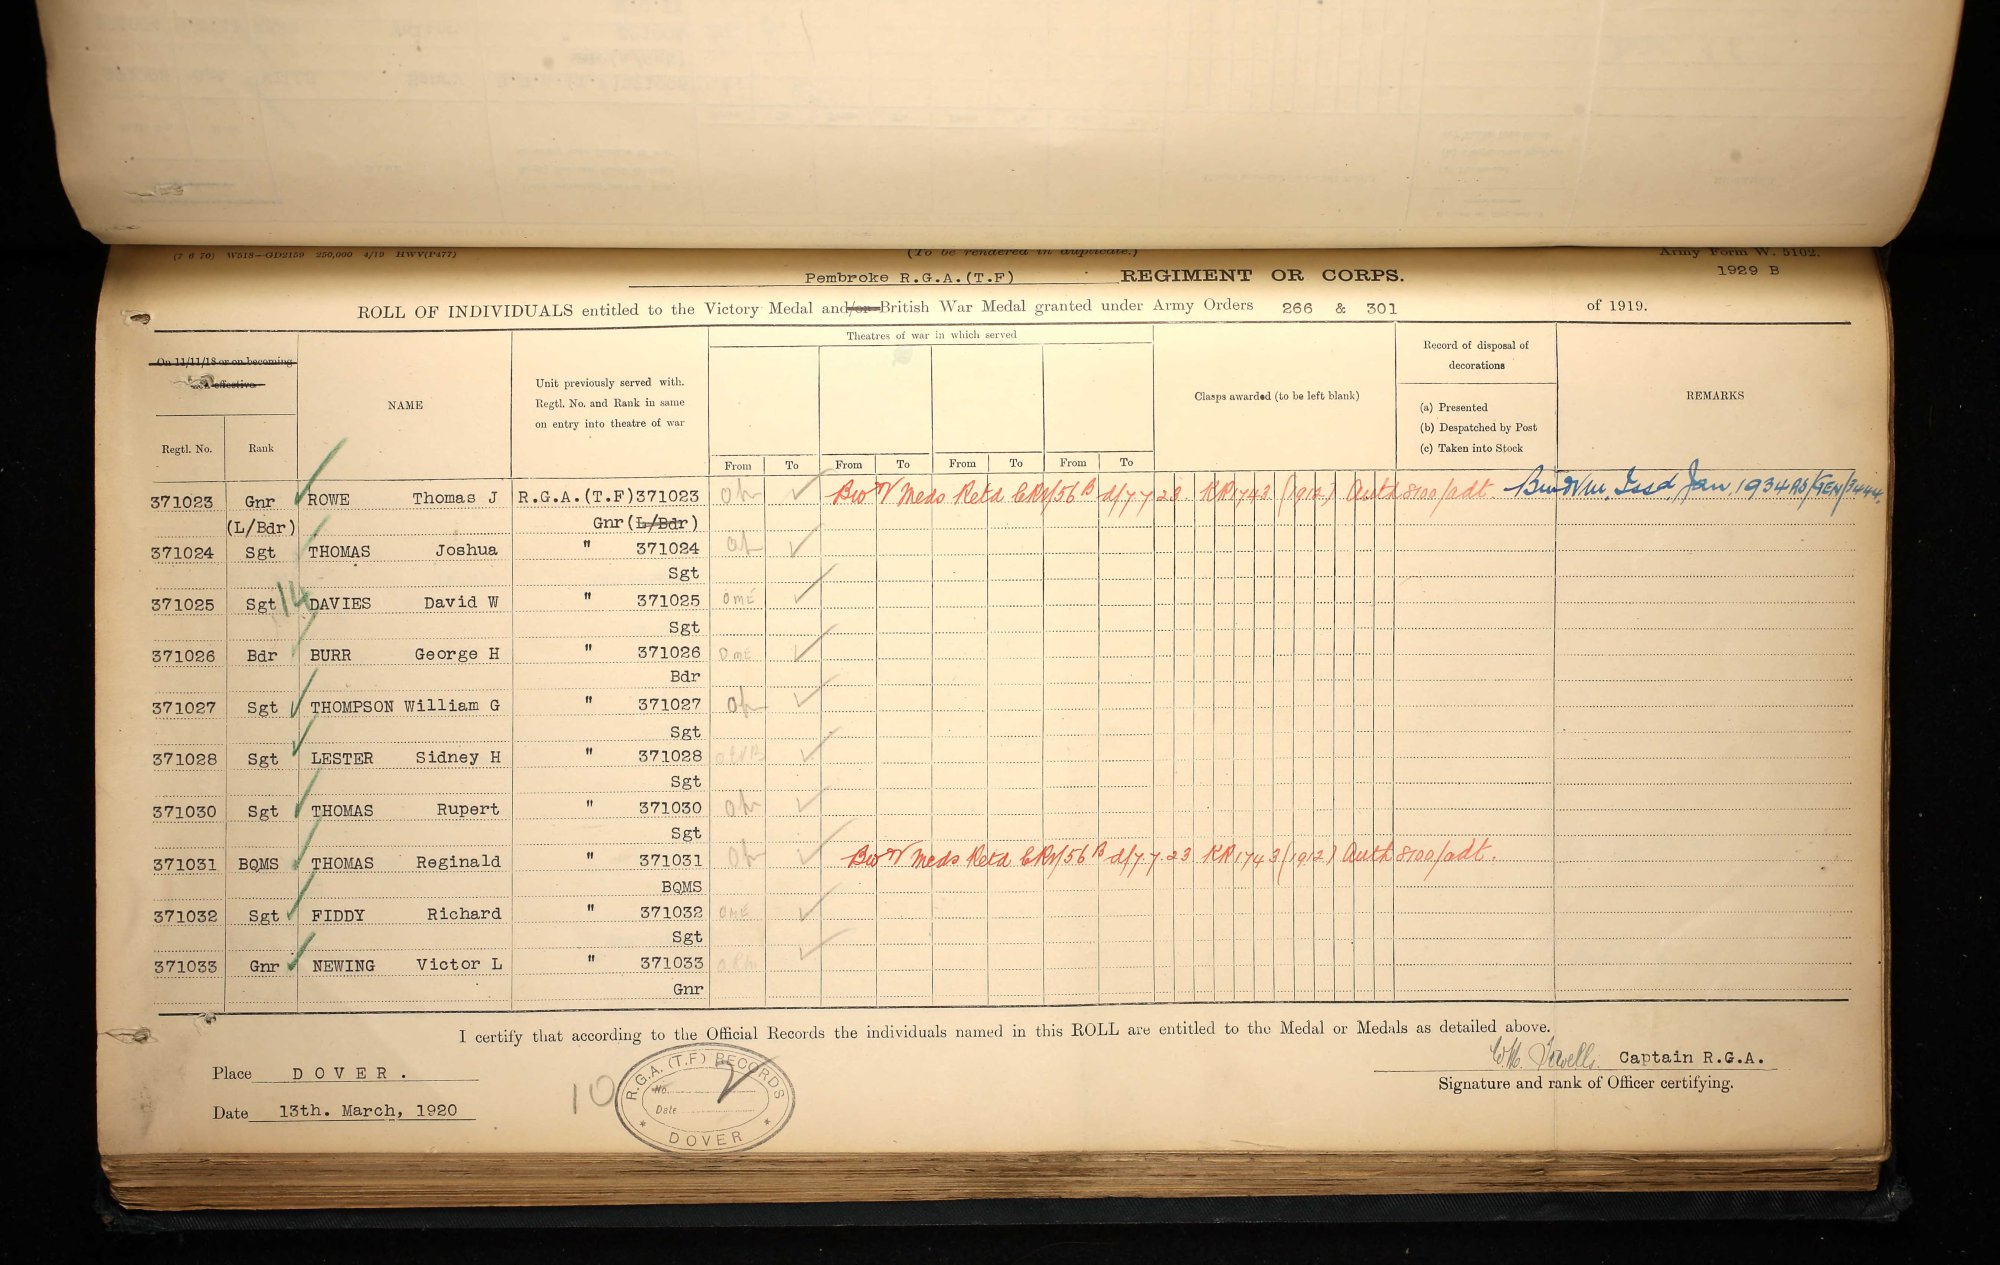 (7 6 70) W518—GD2159 250,000 4/19 HWV(P477)
(To be rendered in duplicate.)
Army Form W. 5102.
Pembroke R.G.A.(T.F) REGIMENT OR CORPS.
1929 B
ROLL OF INDIVIDUALS entitled to the Victory Medal and/or British War Medal granted under Army Orders 266 & 301 of 1919.
On 11/11/18 or on becoming
effective
Regtl. No.
Rank
NAME
Unit previously served with.
Regtl. No. and Rank in same
on entry into theatre of war
Theatres of war in which served
From To From To From To From To
Clasps awarded (to be left blank)
Record of disposal of
decorations
(a) Presented
(b) Despatched by Post
(c) Taken into Stock
REMARKS
371023 Gnr ROWE Thomas J R.G.A.(T.F)371023 BW & V Meds Retd CRV/56 B d/7.7.23 KR 1743 (1912) Auth 8100/adt. BW & VM. Issd Jan. 1934 AS/GEN/3444.
(L/Bdr) Gnr(L/Bdr)
371024 Sgt THOMAS Joshua " 371024
Sgt
371025 Sgt 14 DAVIES David W " 371025 OME
Sgt
371026 Bdr BURR George H " 371026 OME
Bdr
371027 Sgt THOMPSON William G " 371027
Sgt
371028 Sgt LESTER Sidney H " 371028
Sgt
371030 Sgt THOMAS Rupert " 371030
Sgt
371031 BQMS THOMAS Reginald " 371031 BW & V Meds Retd CRV/56 B d/7.7.23 KR 1743 (1912) Auth 8100/adt.
BQMS
371032 Sgt FIDDY Richard " 371032 OME
Sgt
371033 Gnr NEWING Victor L " 371033
Gnr
I certify that according to the Official Records the individuals named in this ROLL are entitled to the Medal or Medals as detailed above.
Place DOVER.
Date 13th. March, 1920
10
R.G.A. (T.F) RECORDS
No.
Date
* DOVER *
Captain R.G.A.
Signature and rank of Officer certifying.